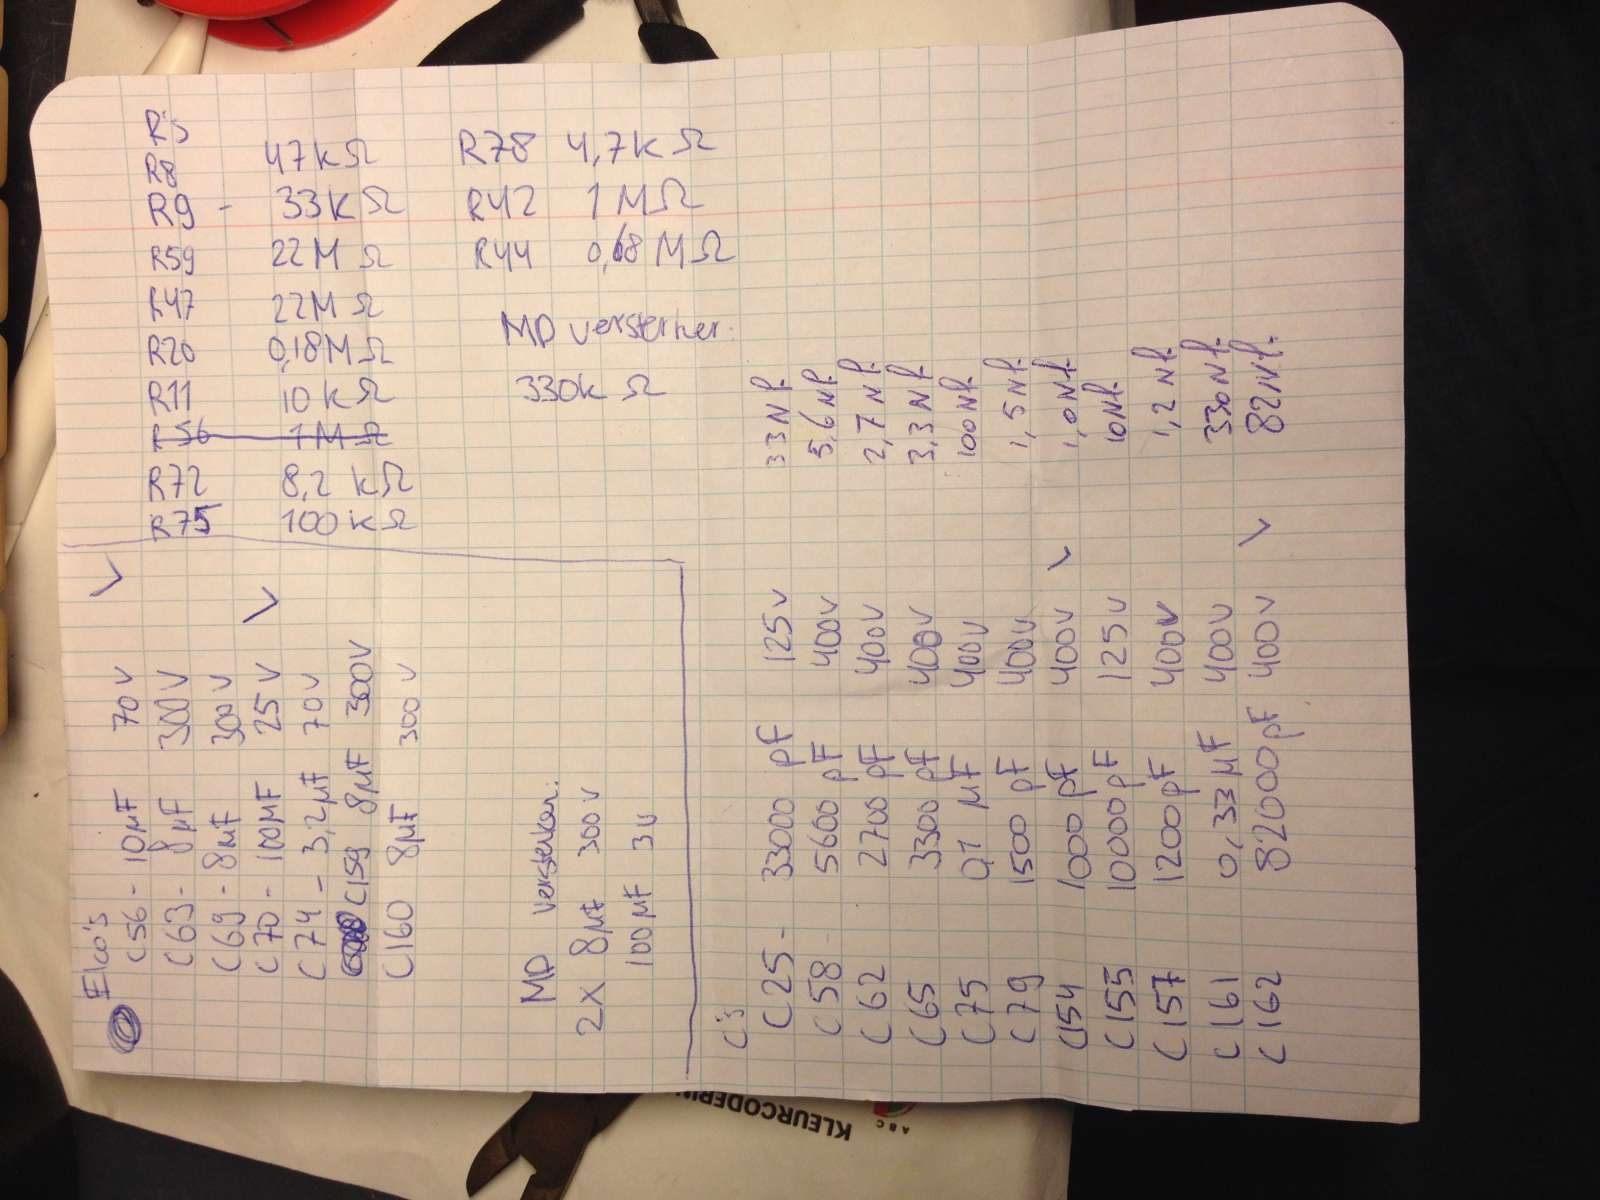 R's
R8 47kΩ
R9 - 33kΩ
R59 22MΩ
R47 22MΩ
R20 0,18MΩ
R11 10kΩ
R56 1MΩ
R72 8,2 kΩ
R75 100kΩ
R78 4,7kΩ
R42 1MΩ
R44 0,68MΩ
MD versterker.
330kΩ
Elco's
C56 - 10µF 70V
C63 - 8µF 300V
C69 - 8µF 300V
C70 - 100µF 25V
C74 - 3,2µF 70V
C159 8µF 300V
C160 8µF 300V
MD versterker:
2X 8µF 300V
100µF 3V
C's
C25 - 33000 pF 125V 33Nf.
C58 - 5600 pF 400V 5,6Nf.
C62 2700 pF 400V 2,7Nf.
C65 3300 pF 400V 3,3Nf.
C75 0,1 µF 400V 100Nf.
C79 1500 pF 400V 1,5Nf.
C154 1000 pF 400V 1,0Nf.
C155 10000pF 125V 10Nf.
C157 1200pF 400V 1,2Nf.
C161 0,33µF 400V 330Nf.
C162 82000pF 400V 82Nf.
KLEURCODERIN
ABC